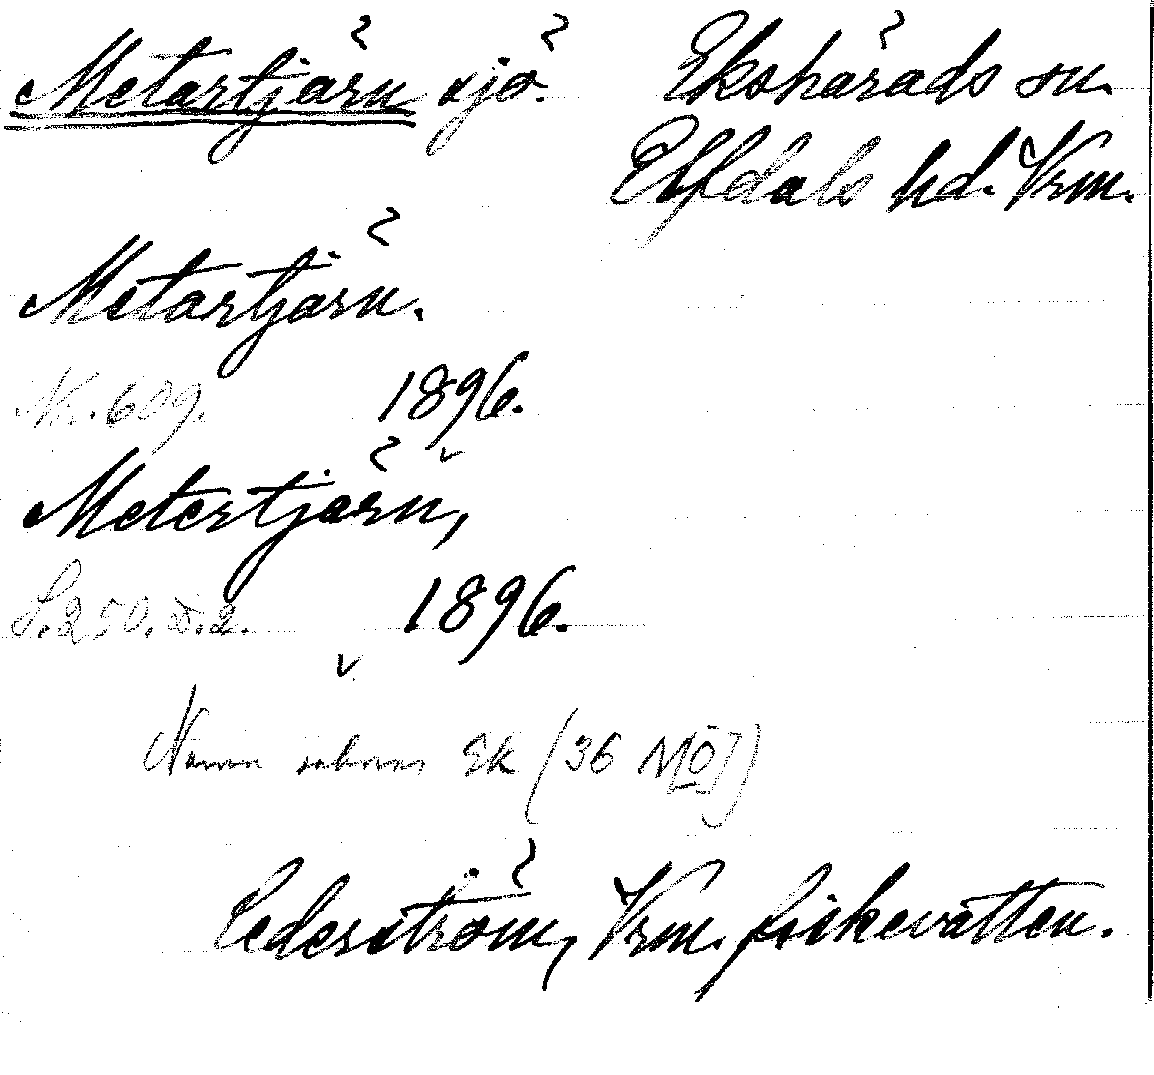 Metartjärn sjö. Ekshärads sn.
Elfdals hd. Vrm.
Metartjärn.
Nr. 609. 1896.
Metertjärn,
S. 250. d. 2. 1896.
Namn saknas Ek (36 MÖJ)
Cederström, Vrm. fiskevatten.